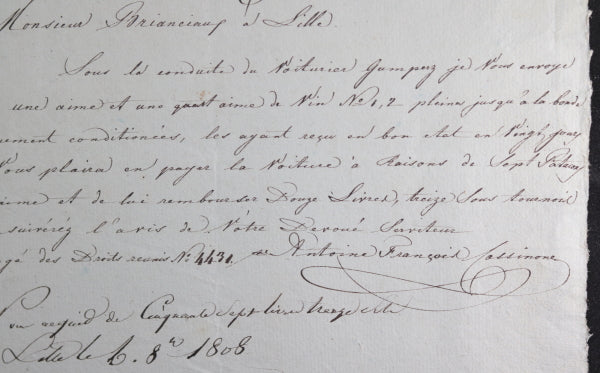 Monsieur Brianciaux à Lille.
Sous la conduite du Voiturier Gumperz je Vous envoye
une aime et une quart aime de Vin No 1, 2 pleines jusqu'à la bonde
uement conditionées, les ayant reçu en bon etat en Vingt jours
Vous plaira en payer la Voiture à Raisons de Sept
aime et de lui rembourser Douze Livres, treize Sous tournois
suiverez l'avis de Vôtre Devoué Serviteur
gé des Droits reunis No 4431. Antoine François Cassinone
Pour acquid de Cinquante Sept livres
Lille le 6. 8re 1808